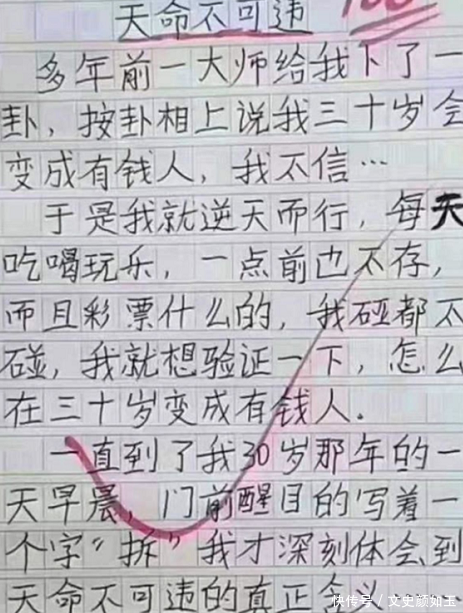 天命不可违
多年前一大师给我下了一
卦，按卦相上说我三十岁会
变成有钱人，我不信…
于是我就逆天而行，每天
吃喝玩乐，一点前也不存，
而且彩票什么的，我碰都不
碰，我就想验证一下，怎么
在三十岁变成有钱人.
一直到了我30岁那年的一
天早晨，门前醒目的写着一
个字“拆”我才深刻体会到
天命不可违的真正含义
快传号/文史颜如玉